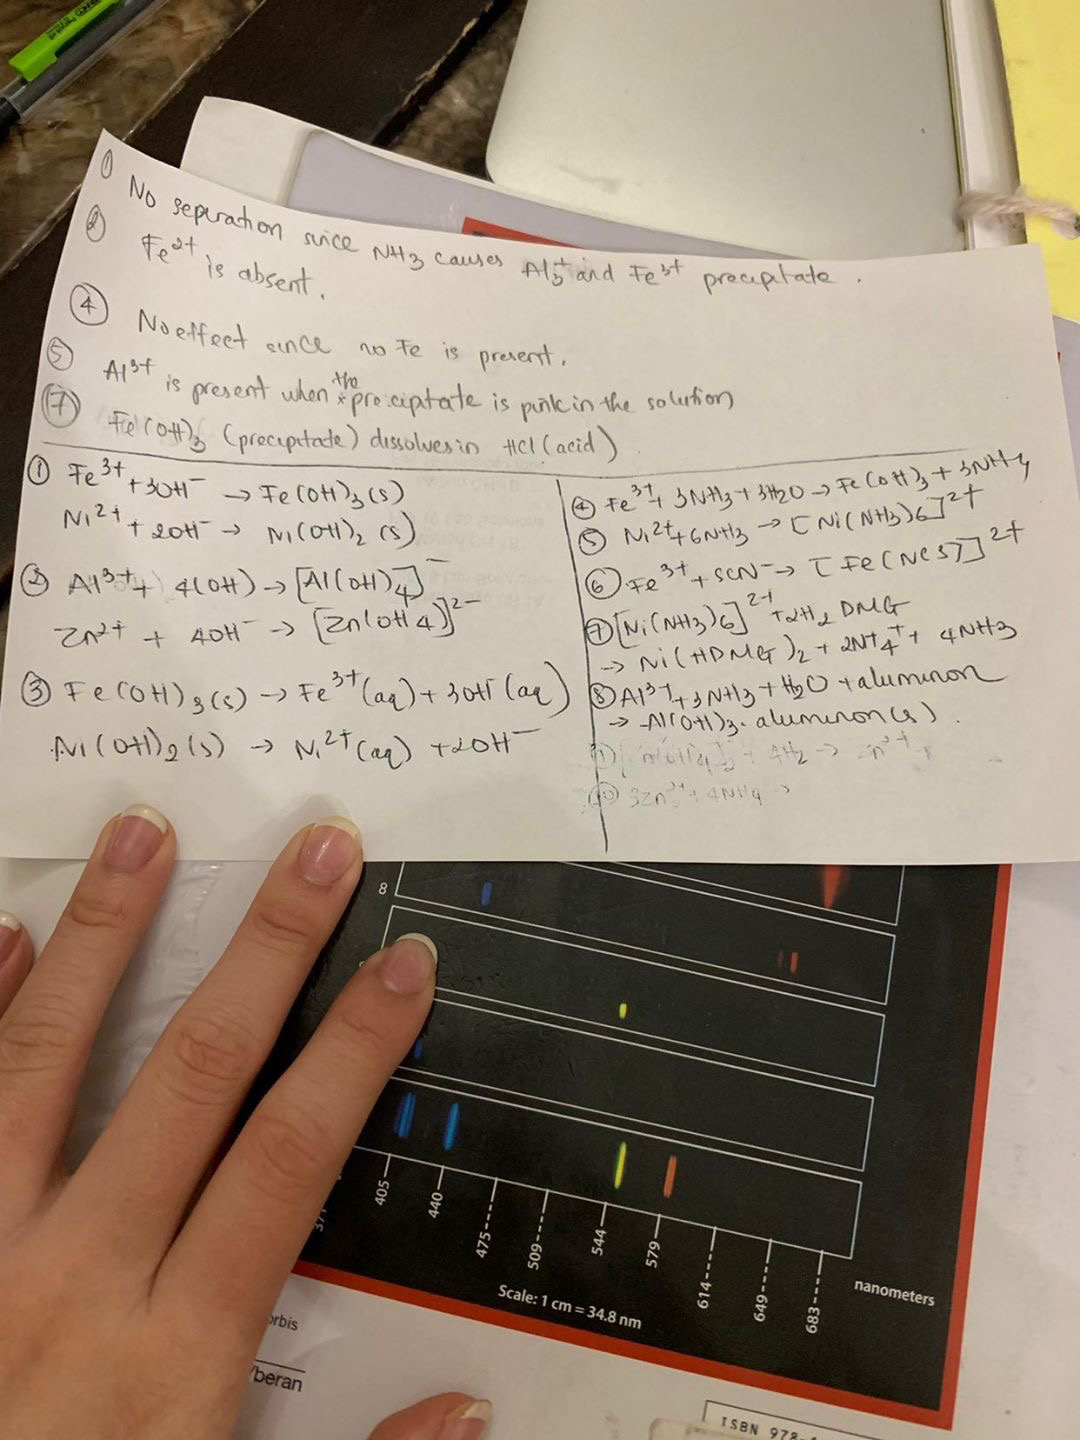 ① No sepuration since NH3 causes Al3+ and Fe3+ precipitate.
② Fe2+ is absent.
④ No effect since no Fe is present.
⑤ Al3+ is present when the precaptate is pink in the solution
⑦ Fe(OH)3 (precipitate) dissolves in HCl (acid)
① Fe3+ + 3OH- → Fe(OH)3(s)
Ni2+ + 2OH- → Ni(OH)2 (s)
② Al3+ + 4(OH) → [Al(OH)4]-
Zn2+ + 4OH- → [Zn(OH4)]2-
③ Fe(OH)3(s) → Fe3+(aq) + 3OH(aq)
Ni(OH)2(s) → Ni2+(aq) + 2OH-
④ Fe3+ + 3NH3 + 3H2O → Fe(OH)3 + 3NH4
⑤ Ni2+ + 6NH3 → [Ni(NH3)6]2+
⑥ Fe3+ + SCN- → [Fe(NCS)]2+
⑦ [Ni(NH3)6]2+ + 2H2DMG
→ Ni(HDMG)2 + 2NH4+ + 4NH3
⑧ Al3+ + 3NH3 + H2O + aluminon
→ Al(OH)3·aluminon(s).
+ 4H2 → Zn2+
3Zn2+ + 4NH4 →
8
405
440
475
509
544
579
614
649
683
nanometers
Scale: 1 cm = 34.8 nm
orbis
/beran
ISBN 978-